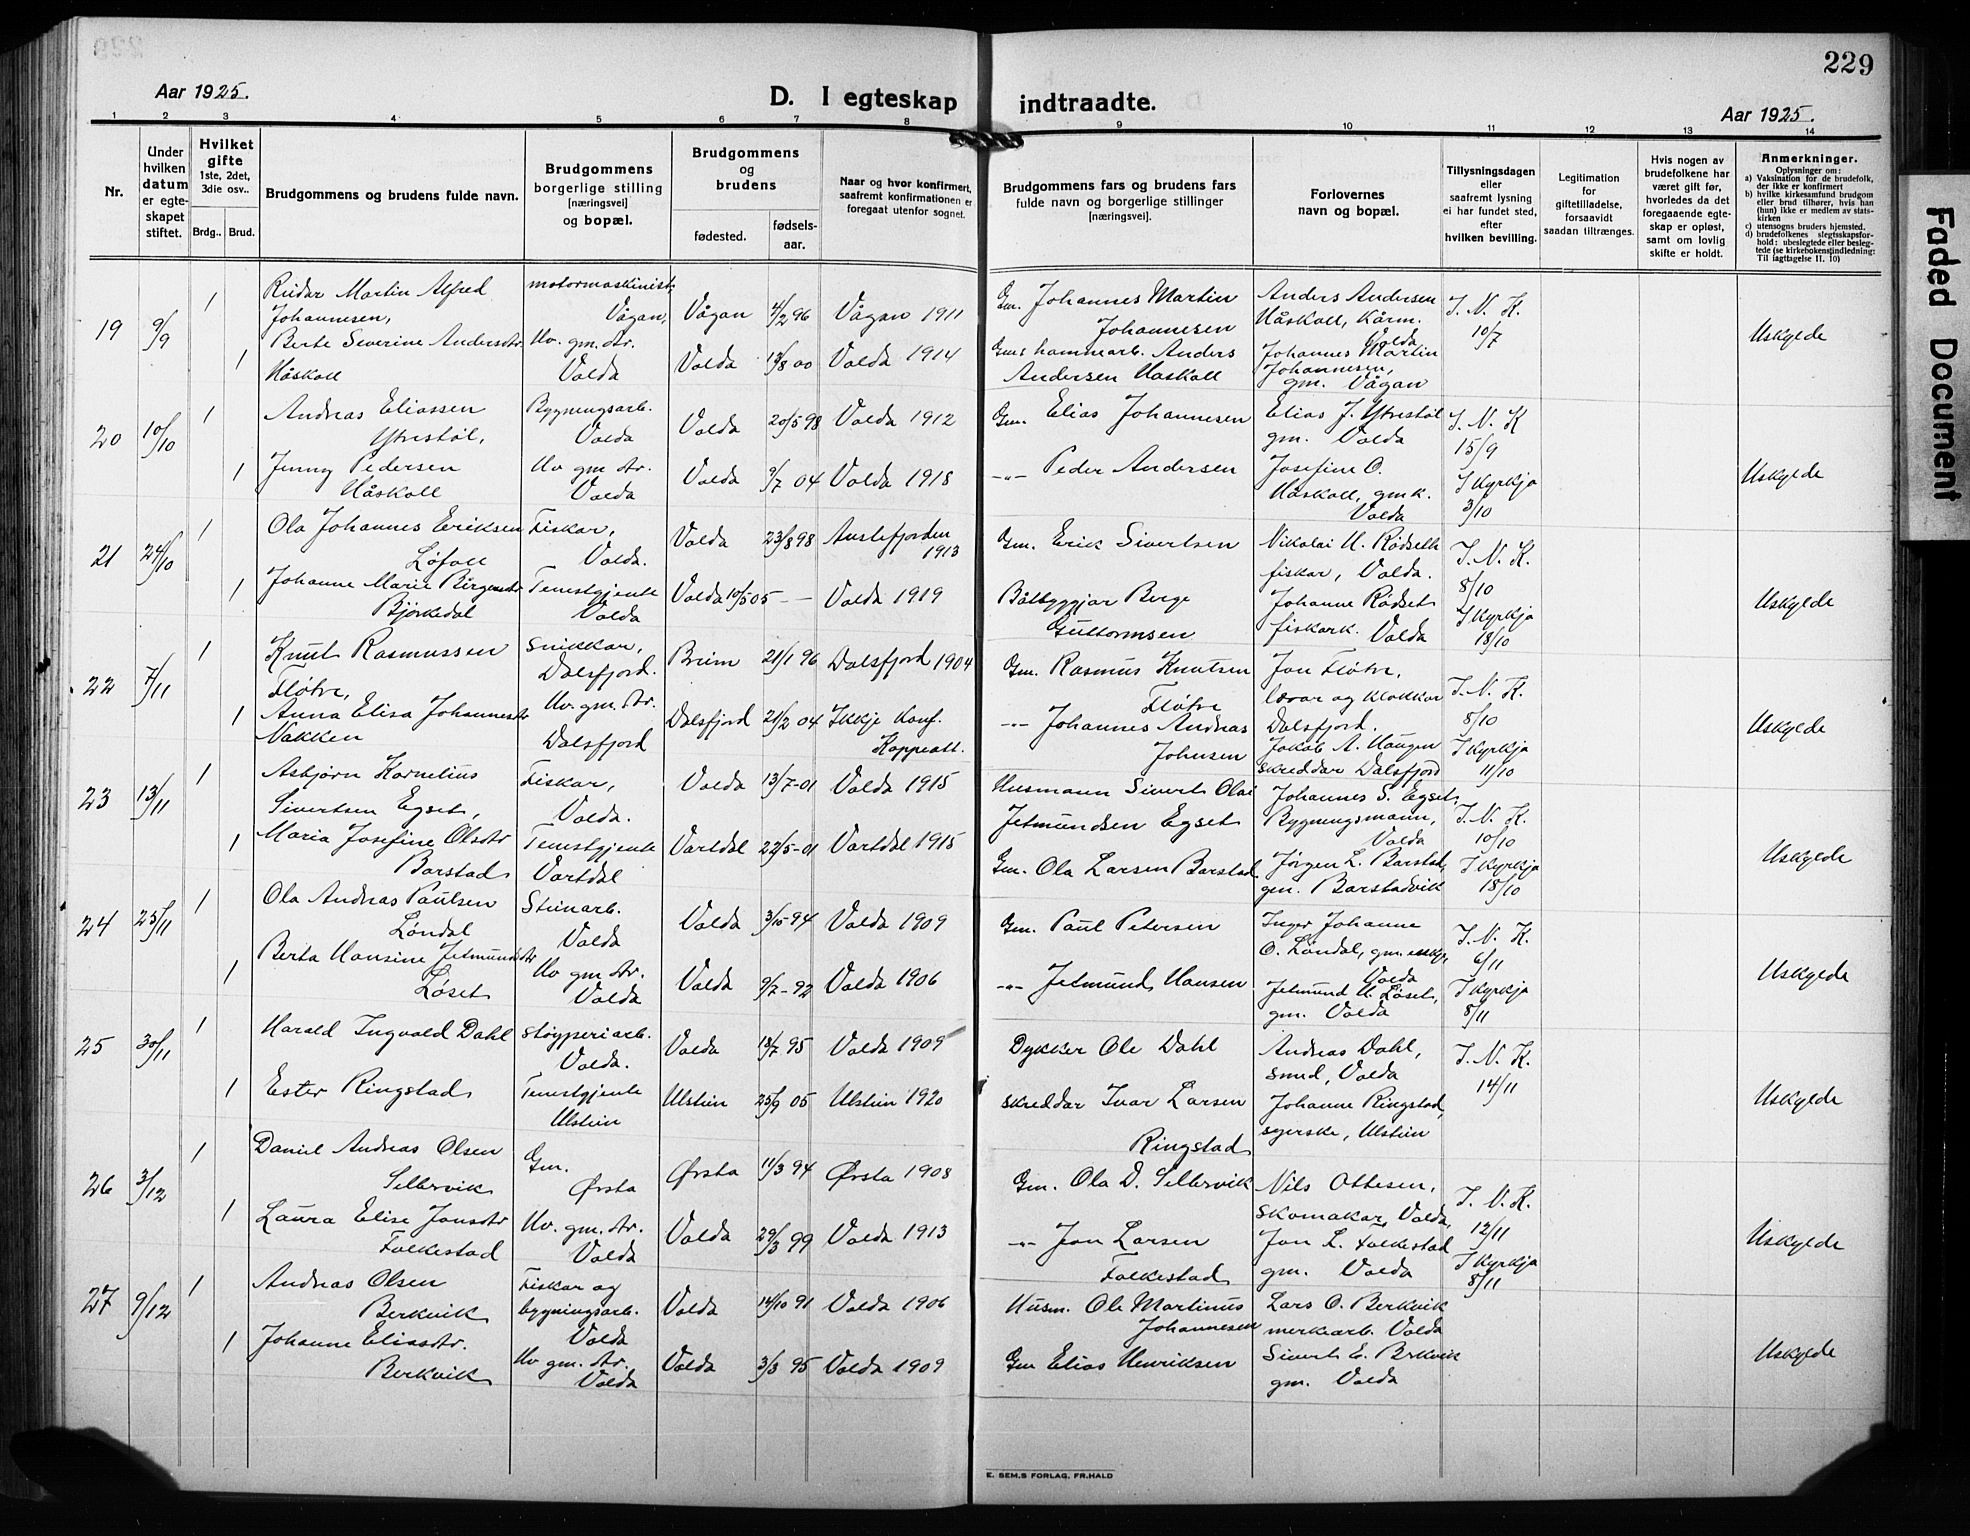 229
Aar 1925.
D. I egteskap indtraadte.
Aar 1925.
1 2 3 4 5 6 7 8 9 10 11 12 13 14
Nr.
Under hvilken datum er egteskapet stiftet.
Hvilket gifte 1ste, 2det, 3die osv..
Brdg.. Brud.
Brudgommens og brudens fulde navn.
Brudgommens borgerlige stilling [næringsvei] og bopæl.
Brudgommens og brudens
fødested.
fødselsaar.
Naar og hvor konfirmert, saafremt konfirmationen er foregaat utenfor sognet.
Brudgommens fars og brudens fars fulde navn og borgerlige stillinger [næringsvei].
Forlovernes navn og bopæl.
Tillysningsdagen eller saafremt lysning ei har fundet sted, efter hvilken bevilling.
Legitimation for giftetilladelse, forsaavidt saadan tiltrænges.
Hvis nogen av brudefolkene har været gift før, hvorledes da det foregaaende egteskap er opløst, samt om lovlig skifte er holdt.
Anmerkninger.
Oplysninger om:
a) Vaksination for de brudefolk, der ikke er konfirmert
b) hvilke kirkesamfund brudgom eller brud tilhører, hvis han (hun) ikke er medlem av statskirken
c) utensogns bruders hjemsted.
d) brudefolkenes slegtsskapsforhold: ubeslegtede eller beslegtede (se kirkebokens indledning: Til iagttagelse II. 10)
19 9/9
1 Reidar Martin Alfred Johannesen, motormaskinist, Vågan, Vågan 4/2 96 Vågan 1911 Gm. Johannes Martin Johannesen Anders Andersen Håskoll, kårm. Volda I. N. K. 10/7
1 Berte Severine Andersdtr. Håskoll Hv. gm. dtr. Volda Volda 13/8 00 Volda 1914 Gms hammarb. Anders Andersen Haskoll Johannes Martin Johannesen, gm. Vågan Uskylde
20 10/10
1 Andreas Eliassen Ytrestøl, Bygningsarb. Volda Volda 20/5 98 Volda 1912 Gm. Elias Johannesen Elias J. Ytrestøl gm. Volda I. N. K 15/9
1 Jenny Pedersen Håskoll Hv gm dtr. Volda Volda 9/7 04 Volda 1918 -"- Peder Andersen Josefine O. Håskoll, gmk. Volda I Kyrkja 3/10 Uskylde
21 24/10
1 Ola Johannes Eriksen Løfoll Fiskar, Volda. Volda 23/8 98 Austefjorden 1913 Gm. Erik Sivertsen Nikolai H. Rødseth fiskar, Volda. I. N. K. 8/10
1 Johanne Marie Børgesdtr Bjørkedal Tenestgjente Volda Volda 10/5 05 - - Volda 1919 Båtbyggjar Berge Guttormsen Johanne Rødset fiskark. Volda I Kyrkja 18/10 Uskylde
22 7/11
1 Knut Rasmussen Fløtre, Snikkar, Dalsfjord. Breim 21/1 96 Dalsfjord 1904 Gm. Rasmus Knutsen Fløtre Jon Fløtre, lærar og klokkar Dalsfjord. I. N. K. 8/10
1 Anna Elisa Johannesdtr Nakken Hv. gm. dtr. Dalsfjord Dalsfjord 21/2 04 Ikkje Konf. Koppeatt. -"- Johannes Andreas Johnsen Jakob A. Haugen skreddar Dalsfjord I Kyrkja 11/10 Uskylde
23 13/11
1 Asbjørn Kornelius Sivertsen Egset, Fiskar, Volda. Volda 13/7-01 Volda 1915 Husmann Sivert Olai Jetmundsen Egset Johannes S. Egset, Bygningsmann, Volda I. N. K. 10/10
1 Maria Josefine Olsdtr Barstad Tenestgjente Vartdal Vartdal 22/5-01 Vartdal 1915 Gm. Ola Larsen Barstad Jørgen L. Barstad, gm. Barstadvik I Kyrkja 18/10 Uskylde
24 23/11
1 Ola Andreas Paulsen Løndal Steinarb. Volda Volda 3/10-94 Volda 1909 Gm. Paul Petersen Inger Johanne O. Løndal, gm. Volda I. N. K. 6/11
1 Berta Hansine Jetmundsdtr Løset Hv gm dtr. Volda Volda 9/7-92 Volda 1906 -"- Jetmund Hansen Jetmund H. Løset, gm. Volda I Kyrkja 8/11 Uskylde
25 30/11
1 Harald Ingvald Dahl støyperiarb. Volda. Volda 13/7 95 Volda 1909 Dykker Ole Dahl Andreas Dahl, smed, Volda I. N. K. 14/11
1 Ester Ringstad Tenestgjente Ulstein Ulstein 25/9 05 Ulstein 1920 skreddar Ivar Larsen Ringstad Johanne Ringstad, syerske, Ulstein Uskylde
26 3/12
1 Daniel Andreas Olsen Sellervik Gm. Ørsta Ørsta 11/3 94 Ørsta 1908 Gm. Ola D. Sellervik Nils Ottesen, skomakar, Volda, I. N. K. 12/11
1 Laura Elise Jonsdtr Folkestad Hv. gm. dtr. Volda Volda 29/3 99 Volda 1913 -"- Jon Larsen Folkestad Jon L. Folkestad gm. Volda I Kyrkja 8/11 Uskylde
27 9/12
1 Andreas Olsen Berkvik Fiskar og bygningsarb. Volda Volda 14/10 91 Volda 1906 Husm. Ole Martinus Johannesen Lars O. Berkvik merkearb. Volda
1 Johanne Eliasdtr. Berkvik Hv gm. dtr. Volda Volda 3/3 95 Volda 1909 Gm Elias Henriksen Sivert E. Brkvik gm. Volda Uskylde
E. SEM.S FORLAG, FR.HALD
Faded Document